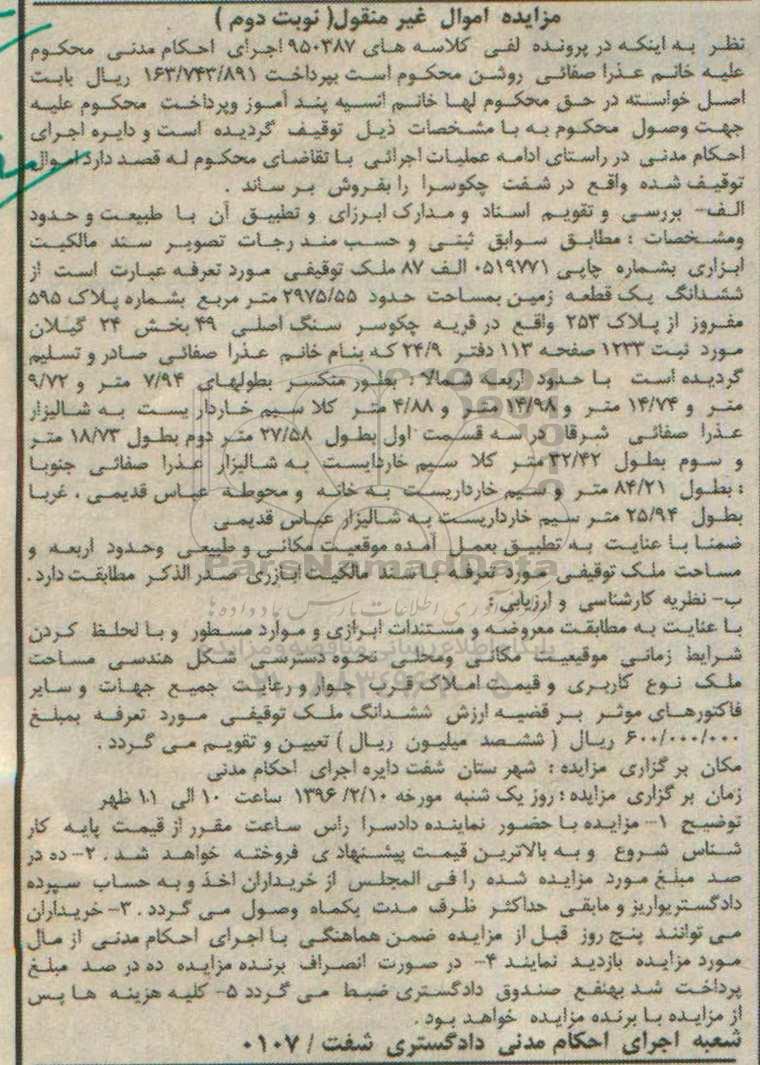 مزایده اموال غیر منقول( نوبت دوم )
نظر به اینکه در پرونده لفی کلاسه های ۹۵۰۳۸۷ اجرای احکام مدنی محکوم
علیه خانم عذرا صفائی روشن محکوم است بپرداخت ۱۶۳/۷۴۳/۸۹۱ ریال بابت
اصل خواسته در حق محکوم لها خانم انسیه پند آموز وپرداخت محکوم علیه
جهت وصول محکوم به با مشخصات ذیل توقیف گردیده است و دایره اجرای
احکام مدنی در راستای ادامه عملیات اجرائی با تقاضای محکوم له قصد دارد اموال
توقیف شده واقع در شفت چکوسرا را بفروش بر ساند .
الف- بررسی و تقویم اسناد و مدارک ابرزای و تطبیق آن با طبیعت و حدود
ومشخصات : مطابق سوابق ثبتی و حسب مندرجات تصویر سند مالکیت
ابزاری بشماره چاپی ۰۵۱۹۷۷۱ الف ۸۷ ملک توقیفی مورد تعرفه عبارت است از
ششدانگ یک قطعه زمین بمساحت حدود ۲۹۷۵/۵۵ متر مربع بشماره پلاک ۵۹۵
مفروز از پلاک ۲۵۳ واقع در قریه چکوسر سنگ اصلی ۴۹ بخش ۲۴ گیلان
مورد ثبت ۱۲۳۳ صفحه ۱۱۳ دفتر ۲۴/۹ که بنام خانم عذرا صفائی صادر و تسلیم
گردیده است با حدود اربعه شمالا : بطور منکسر بطولهای ۷/۹۴ متر و ۹/۷۲
متر و ۱۴/۷۴ متر و ۱۴/۹۸ متر و ۴/۸۸ متر کلا سیم خاردار یست به شالیزار
عذرا صفائی شرقا در سه قسمت اول بطول ۲۷/۵۸ متر دوم بطول ۱۸/۷۳ متر
و سوم بطول ۳۲/۴۲ متر کلا سیم خاردایست به شالیزار عذرا صفائی جنوبا
: بطول ۸۴/۲۱ متر و سیم خارداریست به خانه و محوطه عباس قدیمی . غربا
بطول ۲۵/۹۴ متر سیم خارداریست به شالیزار عباس قدیمی
ضمنا با عنایت به تطبیق بعمل آمده موقعیت مکانی و طبیعی وحدود اربعه و
مساحت ملک توقیفی مورد تعرفه با سند مالکیت ابازری صدر الذکر مطابقت دارد .
ParsNamadData
ب- نظریه کارشناسی و ارزیابی :
با عنایت به مطابقت معروضه و مستندات ابرازی و موارد مسطور و با لحلظ کردن
شرایط زمانی موقیعیت مکانی ومحلی نحوه دسترسی شکل هندسی مساحت
ملک نوع کاربری و قیمت املاک قرب جوار و رعایت جمیع جهات و سایر
فاکتورهای موثر بر قضیه ارزش ششدانگ ملک توقیفی مورد تعرفه بمبلغ
۶۰۰/۰۰۰/۰۰۰ ریال ( ششصد میلیون ریال ) تعیین و تقویم می گردد .
مکان بر گزاری مزایده : شهر ستان شفت دایره اجرای احکام مدنی
زمان بر گزاری مزایده : روز یک شنبه مورخه ۱۳۹۶/۲/۱۰ ساعت ۱۰ الی ۱۱ ظهر
توضیح ۱- مزایده با حضور نماینده دادسرا راس ساعت مقرر از قیمت پایه کار
شناس شروع و به بالاترین قیمت پیشنهاد ی فروخته خواهد شد . ۲- ده در
صد مبلغ مورد مزایده شده را فی المجلس از خریداران اخذ و به حساب سپرده
دادگستریواریز و مابقی حداکثر ظرف مدت یکماه وصول می گردد . ۳- خریداران
می توانند پنج روز قبل از مزایده ضمن هماهنگی با اجرای احکام مدنی از مال
مورد مزایده بازدید نمایند ۴- در صورت انصراف برنده مزایده ده در صد مبلغ
پرداخت شد بهنفع صندوق دادگستری ضبط می گردد ۵- کلیه هزینه ها پس
از مزایده با برنده مزایده خواهد بود .
شعبه اجرای احکام مدنی دادگستری شفت / ۰۱۰۷